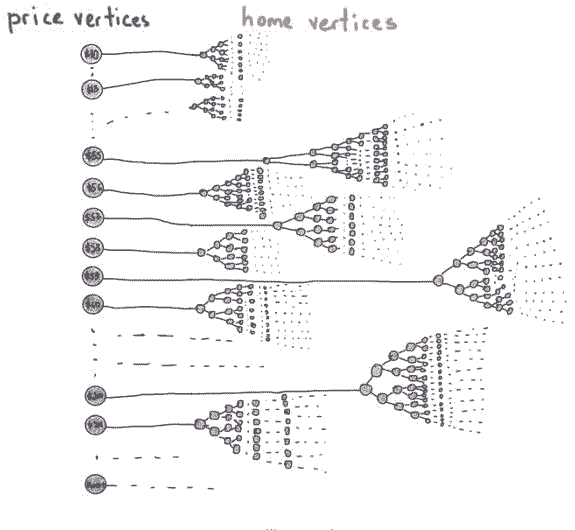 price vertices
home vertices
$10
$55
$56
$57
$58
$59
$60